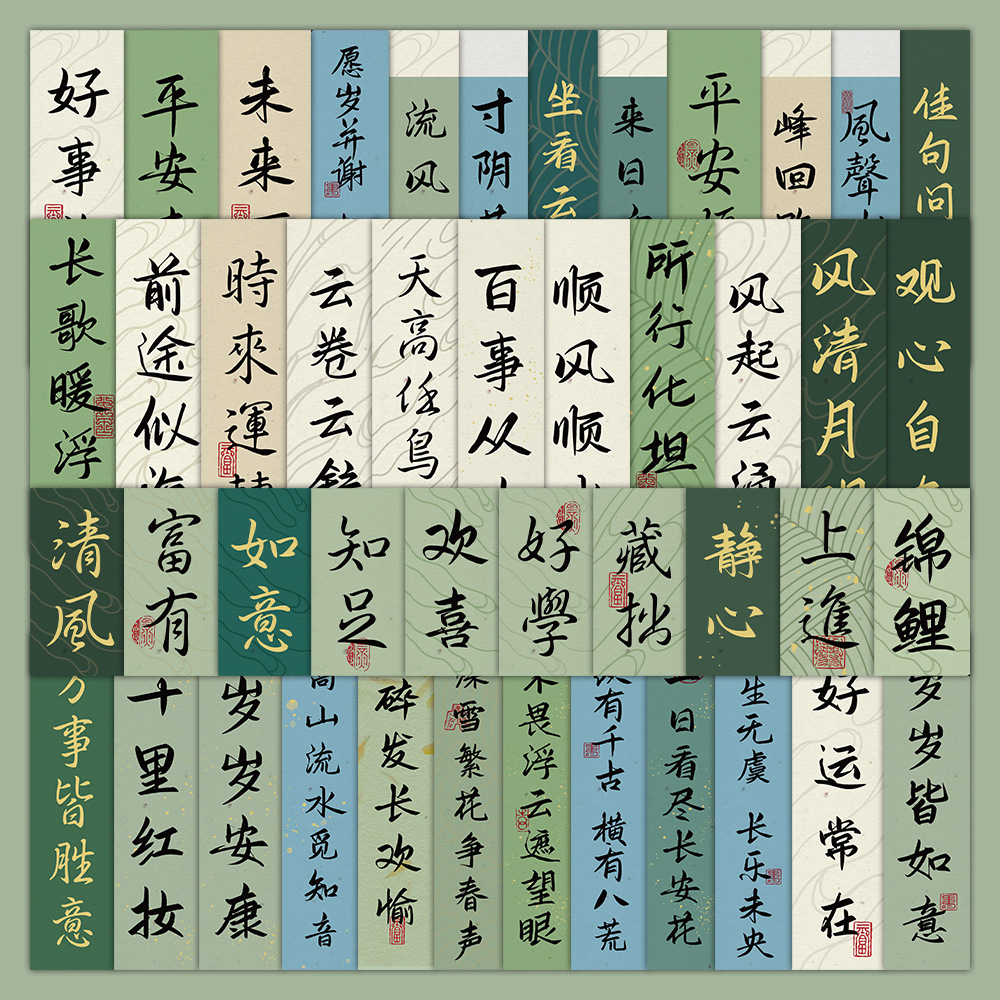 好事
平安
未来
愿岁并谢
流风
寸阴
坐看云
来日
平安
峰回
風聲
佳句问
长歌暖浮
前途似
時來運
云卷云
天高任鳥
百事从
顺风顺
所行化坦
风起云涌
风清月
观心自
清風
富有
如意
知足
欢喜
好學
藏拙
静心
上進
锦鲤
万事皆胜意
十里红妆
岁岁安康
高山流水觅知音
碎发长欢愉
雪繁花争春声
不畏浮云遮望眼
有千古 横有八荒
日看尽长安花
生无虞 长乐未央
好运常在
岁岁皆如意